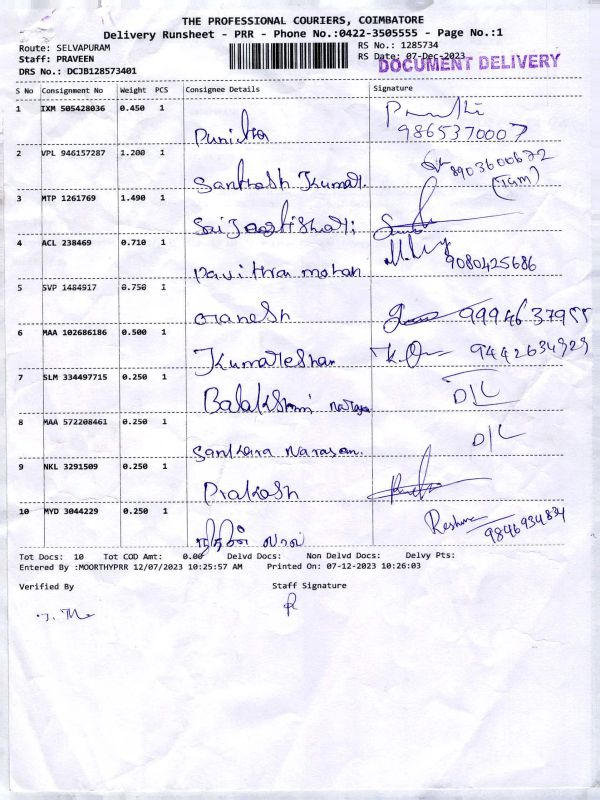 THE PROFESSIONAL COURIERS, COIMBATORE
Delivery Runsheet - PRR - Phone No.:0422-3505555 - Page No.:1
Route: SELVAPURAM
RS No.: 1285734
Staff: PRAVEEN
RS Date: 07-Dec-2023
DOCUMENT DELIVERY
DRS No.: DCJB128573401
S No Consignment No Weight PCS Consignee Details Signature
1 IXM 505428036 0.450 1
Punitha
9865370007
2 VPL 946157287 1.200 1
8903600672
Santhosh Kumar.
3 MTP 1261769 1.490 1
Sai Jagtishati
4 ACL 238469 0.710 1
9080425686
Pavithra mohan
5 SVP 1484917 0.750 1
Ganesh
6 MAA 102686186 0.500 1
Kumareshan
K.O
9442634929
7 SLM 334497715 0.250 1
Balakshmi
D/C
8 MAA 572208461 0.250 1
Sankara Narasan.
D/C
9 NKL 3291509 0.250 1
Prakash
10 MYD 3044229 0.250 1
Reshma
9846934834
Tot Docs: 10 Tot COD Amt: 0.00 Delvd Docs: Non Delvd Docs: Delvy Pts:
Entered By :MOORTHYPRR 12/07/2023 10:25:57 AM Printed On: 07-12-2023 10:26:03
Verified By Staff Signature